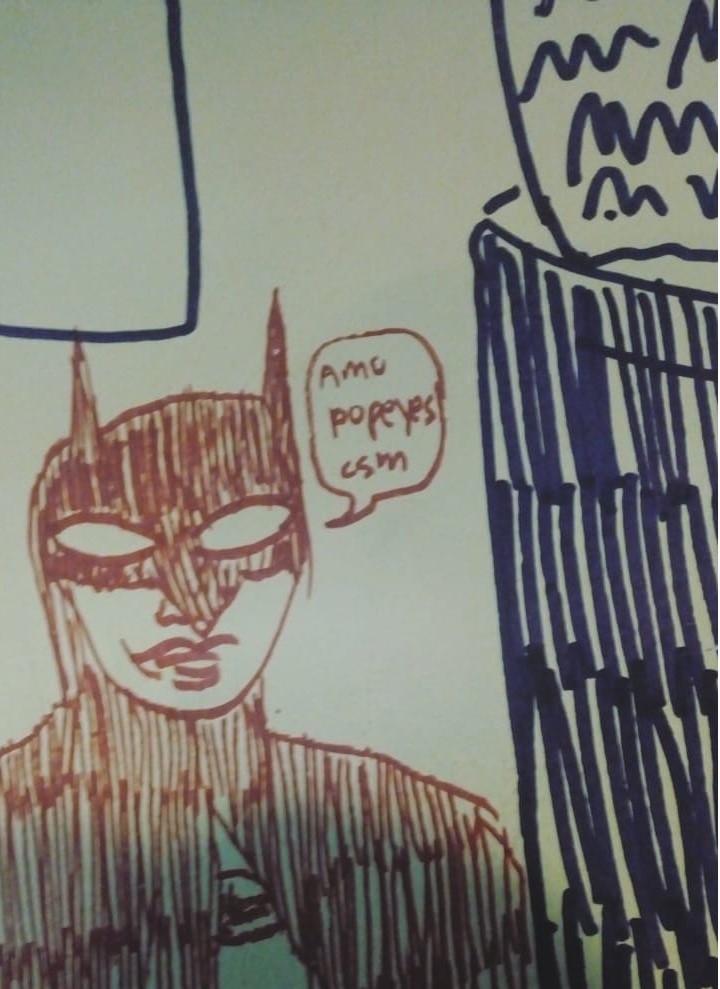 Amo
popeyes
csm